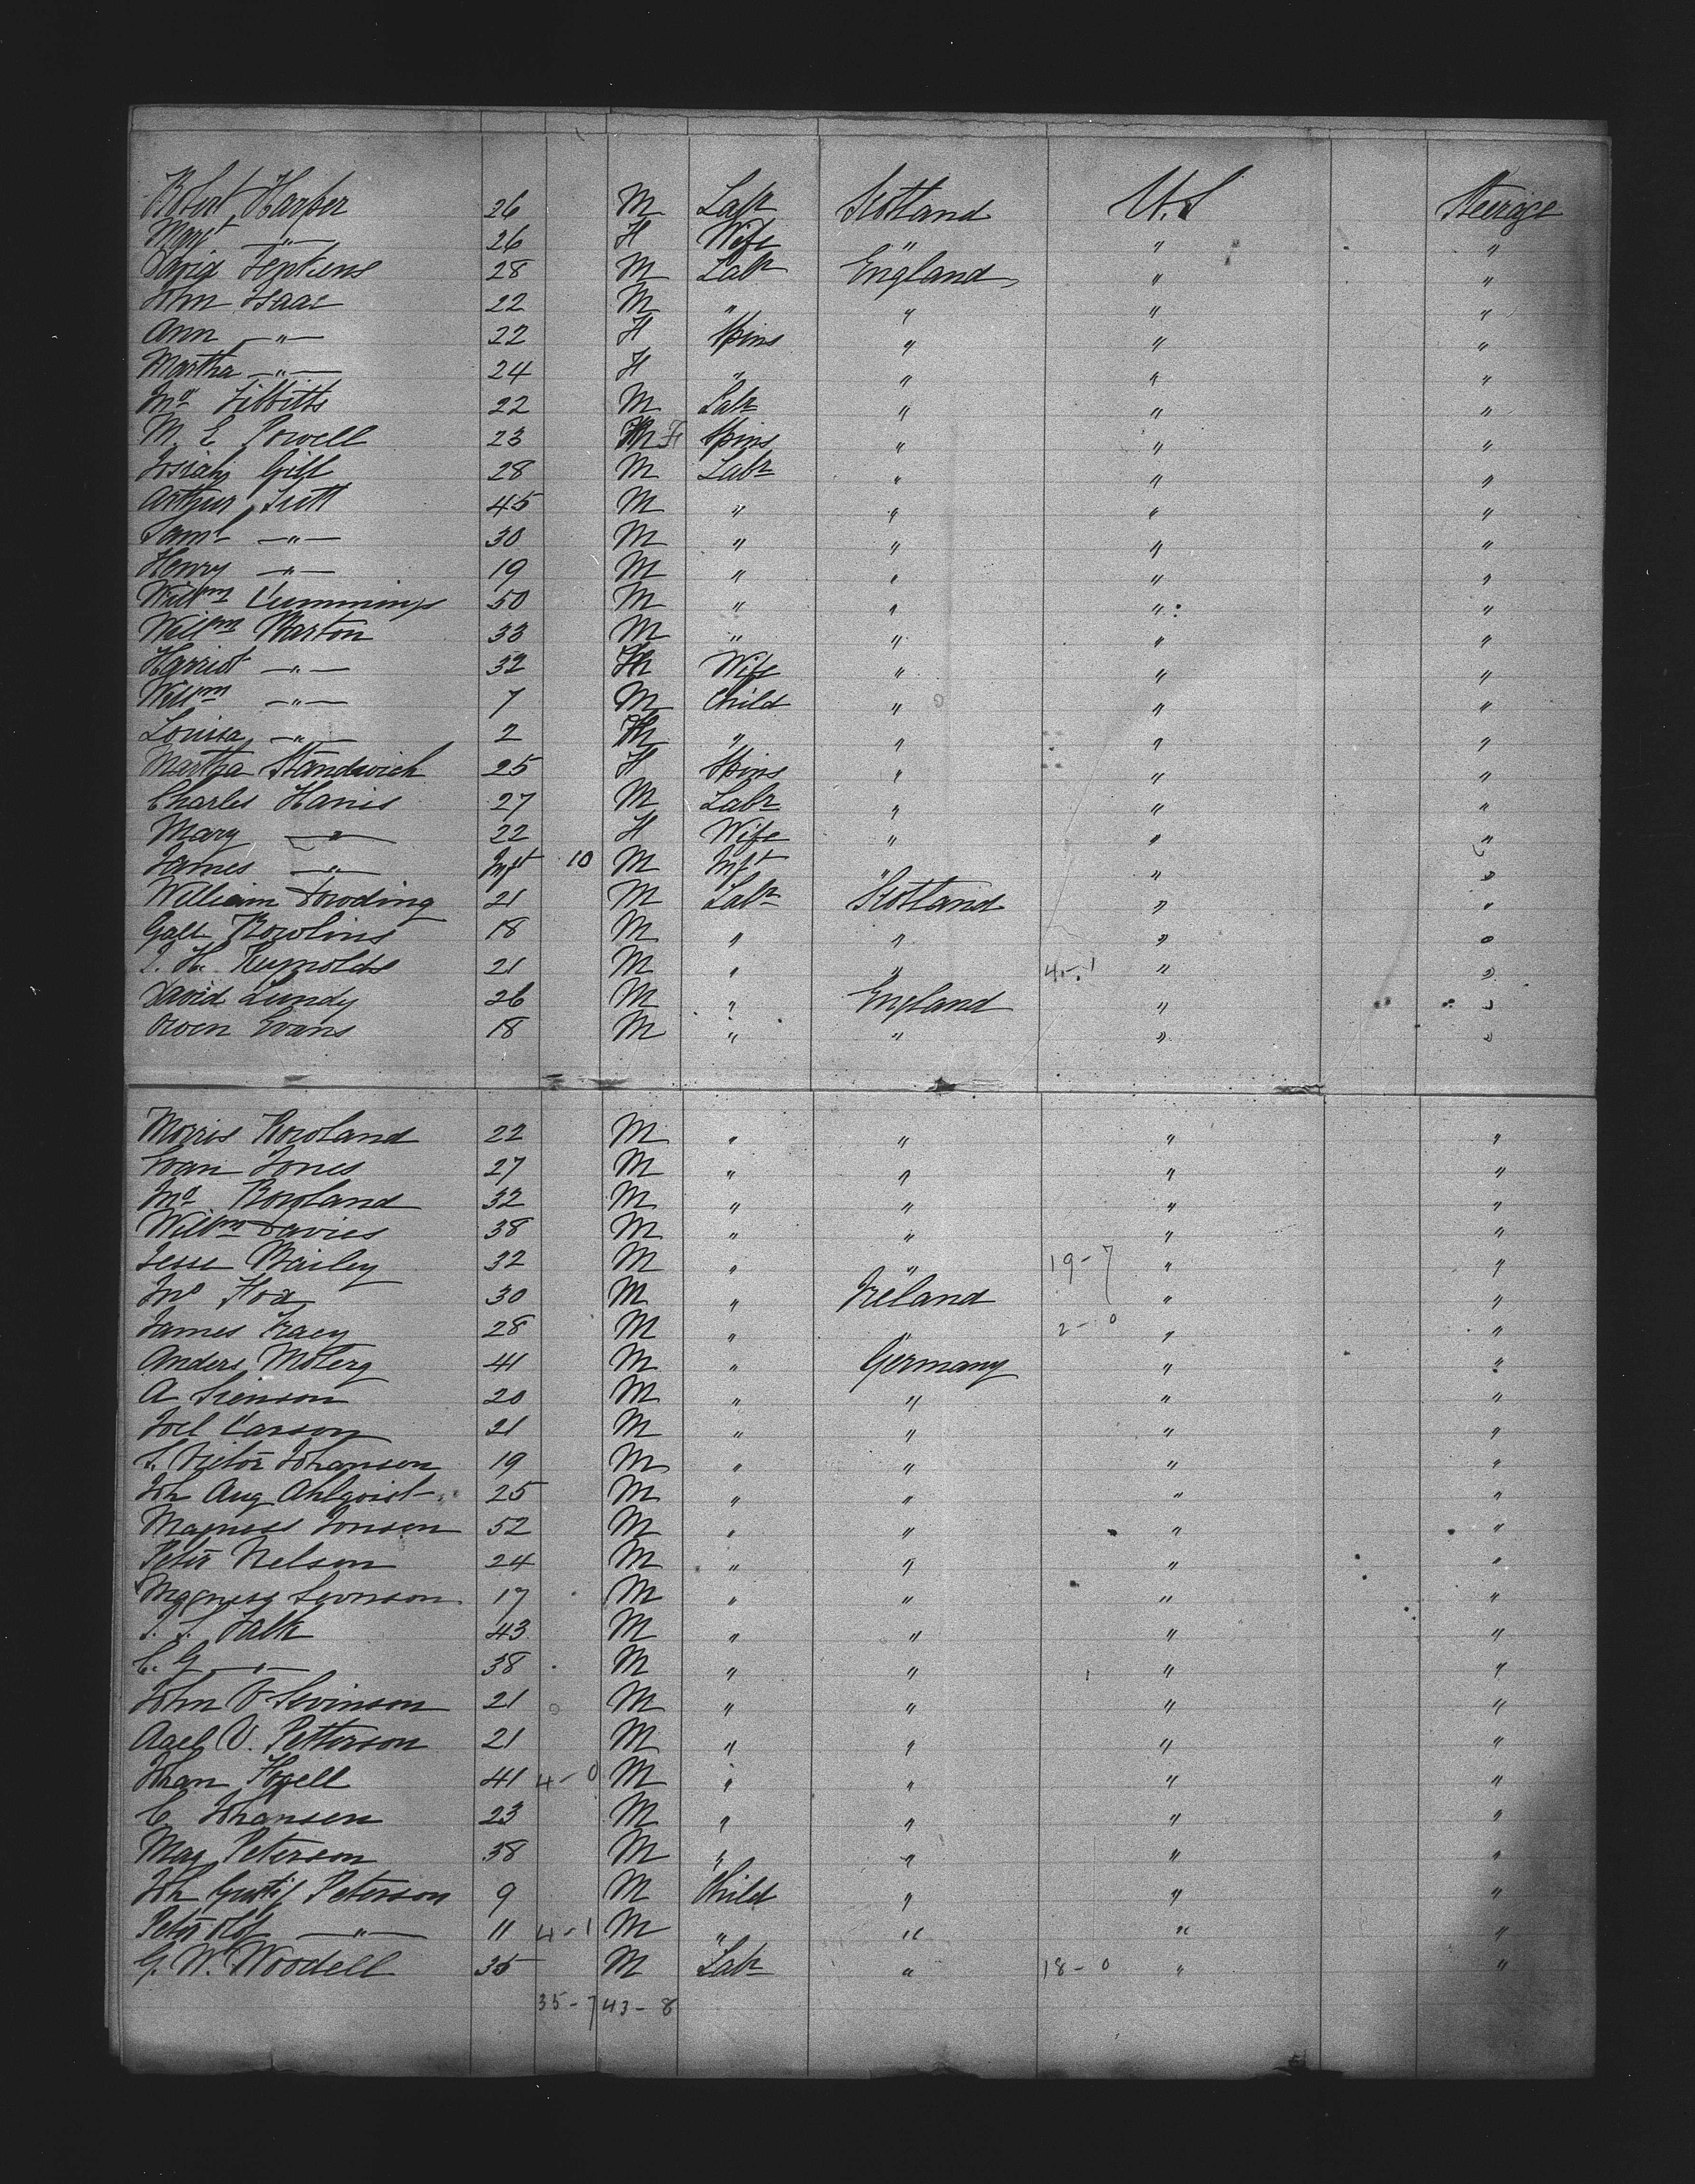 Robert Harper 26 M Labr Scotland U.S Steerage
Mart —"— 26 F Wife " " "
David Jenkins 28 M Labr England " "
John Isaac 22 M " " " "
Ann —"— 22 F Spins " " "
Martha —"— 24 F " " " "
Jno Tibbitts 22 M Labr " " "
M. E Powell 23 M F Spins " " "
Josiah Gill 28 M Labr " " "
Arthur 45 M " " " "
Saml —"— 30 M " " " "
Henry —"— 19 M " " " "
Willm Cummings 50 M " " " "
Willm Barton 33 M " " " "
Harriet —"— 32 F Wife " " "
Willm —"— 7 M Child " " "
Louisa —"— 2 F " " " "
Martha Standwich 25 F Spins " " "
Charles Harris 27 M Labr " " "
Mary —"— 22 F Wife " " "
James —"— Inft 10 M Inft " " "
William Dowding 21 M Labr Scotland " "
Galt Rowlins 18 M " " " "
J. H. Reynolds 21 M " " 4-1 " "
David Lundy 26 M " England " "
Owen Evans 18 M " " " "
Morris Rowland 22 M " " " "
Evan Jones 27 M " " " "
Jno Rowland 32 M " " " "
Willm Davies 38 M " " " "
Jesse Bailey 32 M " " 19-7 " "
Jno Fox 30 M " Ireland " "
James Tracy 28 M " " 2-0 " "
Anders Moberg 41 M " Germany " "
A Svenson 20 M " " " "
Joel Carson 21 M " " " "
S. Victor Johansen 19 M " " " "
Joh Aug Ahlqvist 25 M " " " "
Magness Jonsen 52 M " " " "
Peter Nelson 24 M " " " "
Magness Svenson 17 M " " " "
J. S. Falk 43 M " " " "
C. G —"— 38 M " " " "
John V Svinson 21 M " " " "
Axel V. Petterson 21 M " " " "
Johan Hogell 41 4-0 M " " " "
C. Johansen 23 M " " " "
Mag Peterson 38 M " " " "
Joh Gustif Peterson 9 M Child " " "
Peter Olof —"— 11 4-1 M " " " "
G. W. Woodell 35 M Labr " 18-0 " "
35-7 43-8